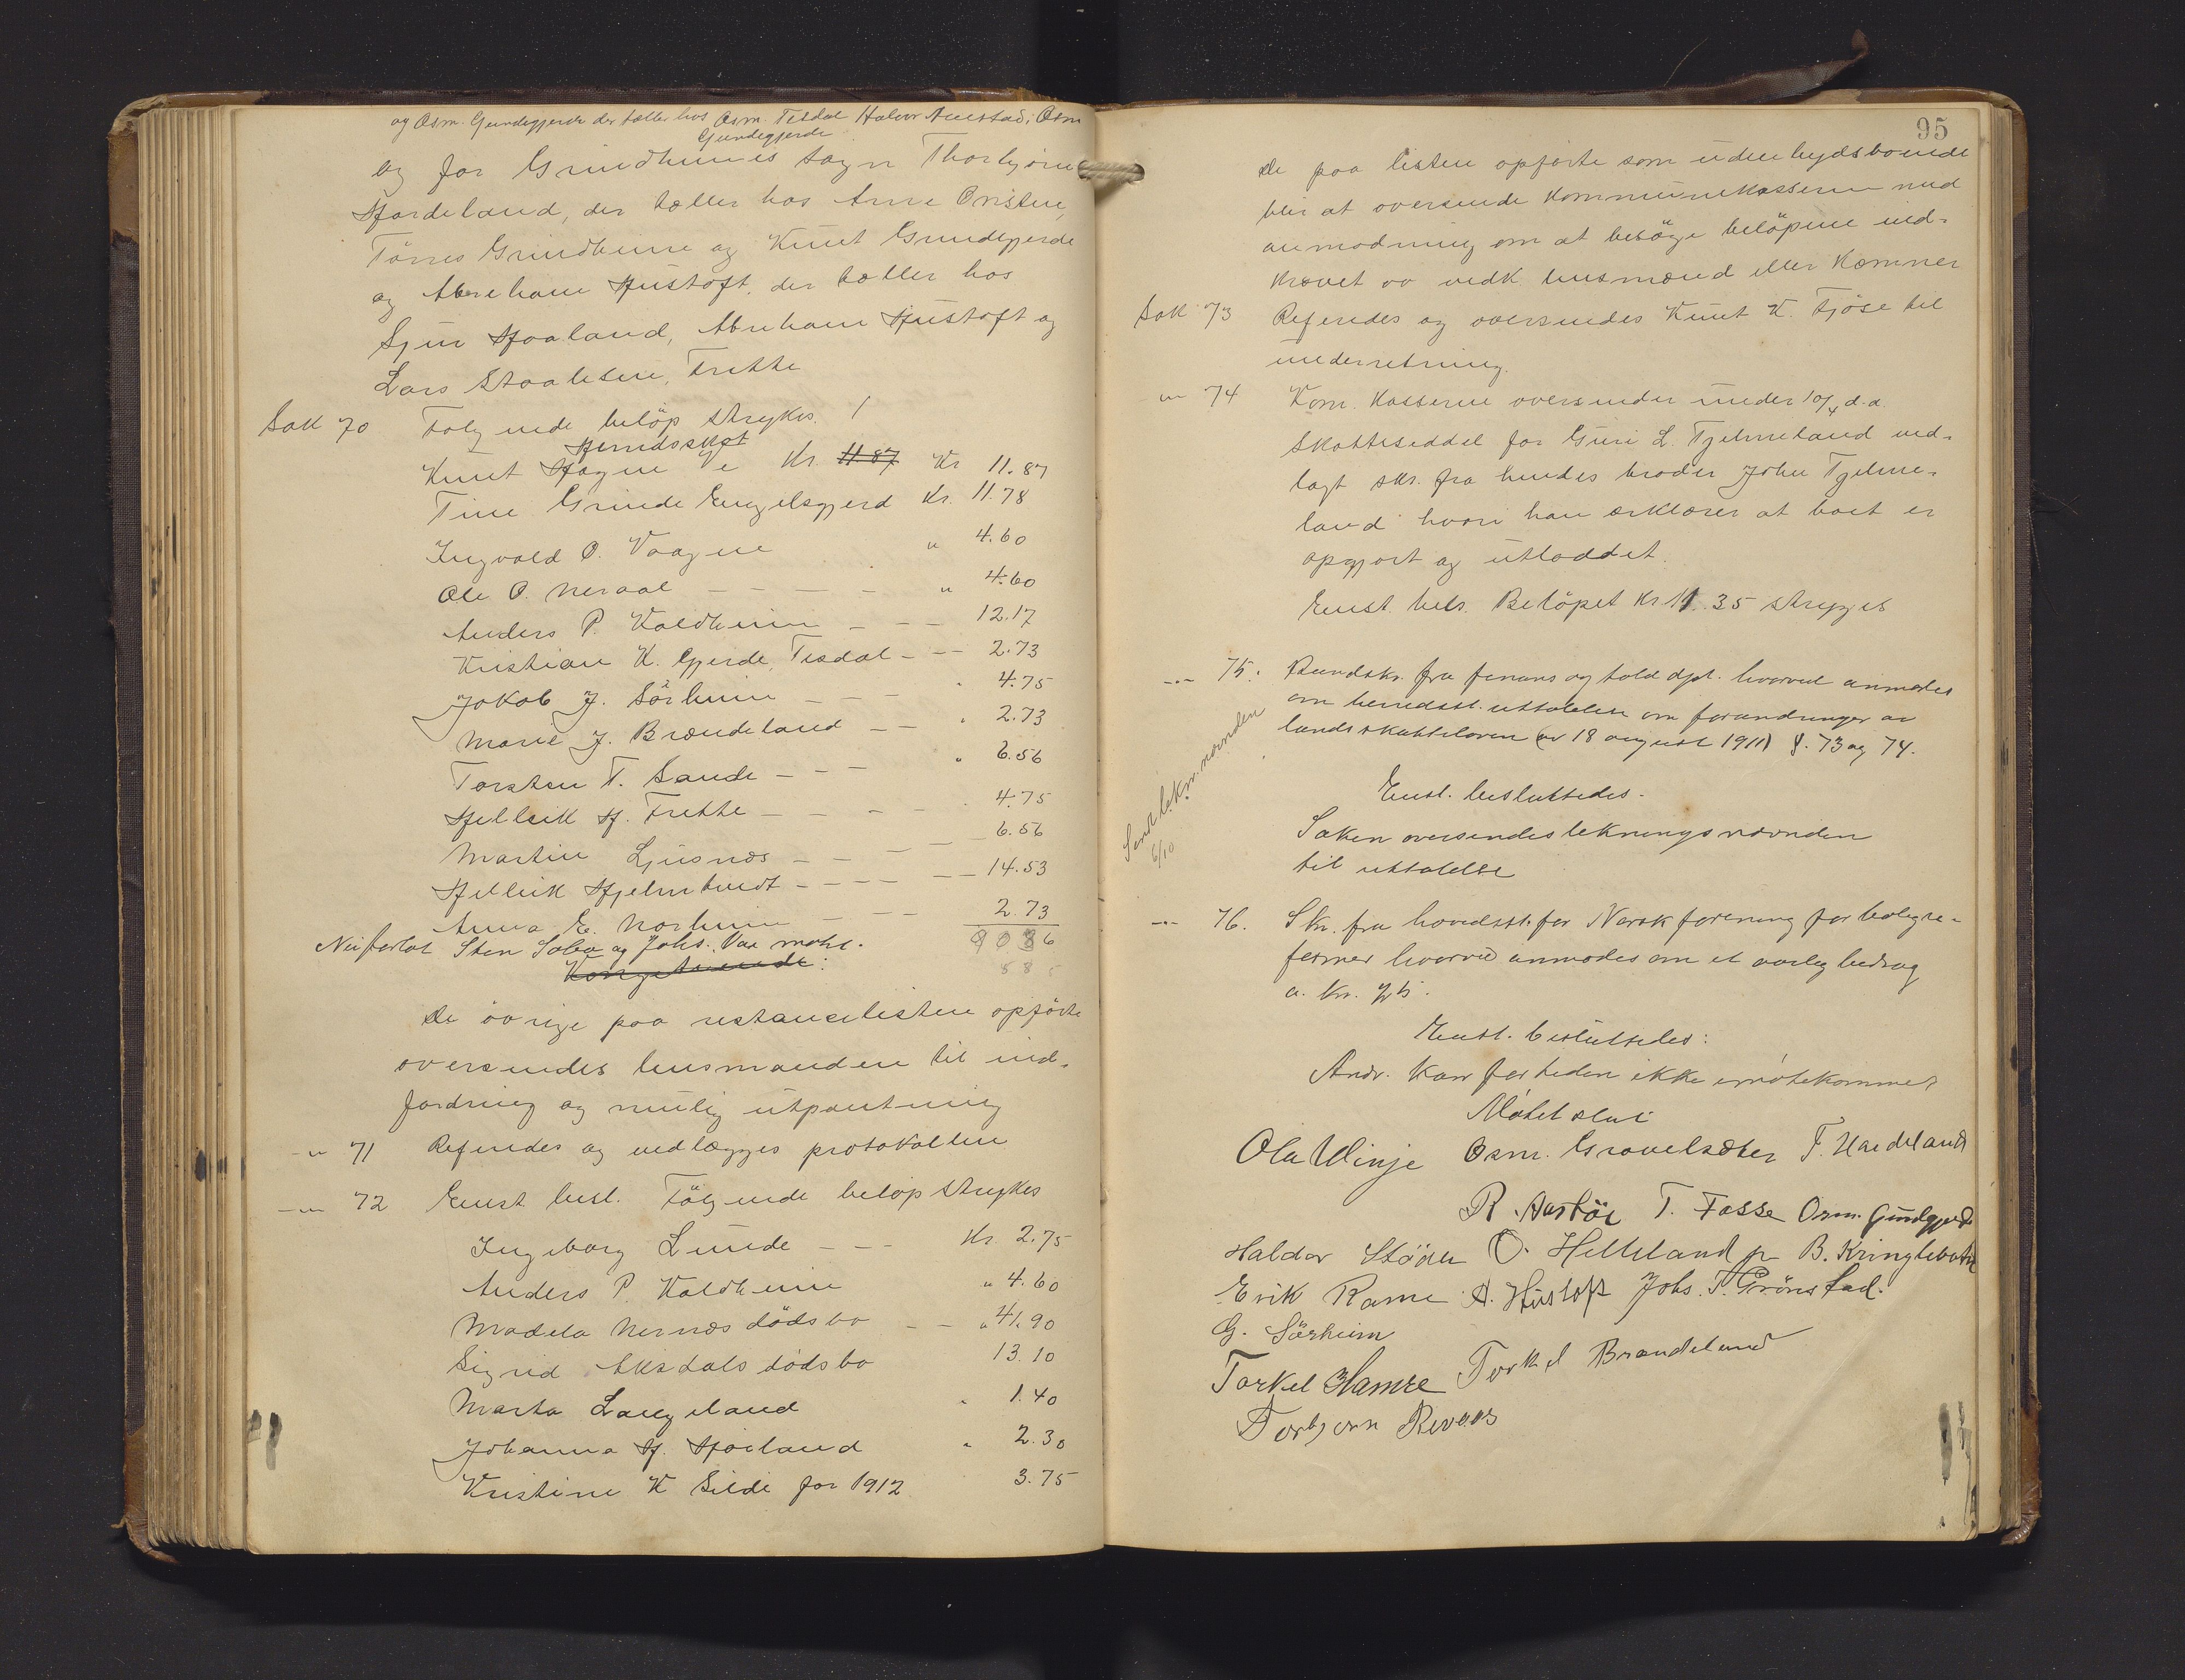 og Osm. Gundegjerde der tæller hos Osm. Tesdal Halvor Austad, Osm
Gundegjerde
og for Grindheims sogn Thorbjørn
Hardeland, der tæller hos Arne Øristen,
Tørres Grindheim og Knut Grindegjerde
og Abraham Hustoft, der tæller hos
Sjur Haaland, Abraham Hustoft og
Lars Staalesen, Frette
Sak 70 Følgende beløp strykes.
Herredsskat
Knut Hagen Kr. 11.87 Kr 11.87
Tine Grinde Engelsgjerd Kr. 11.78
Ingvald O. Vaagen " 4.60
Ole O. Neraal " 4.60
Anders P. Kaldheim 12.17
Kristian K. Gjerde, Tesdal 2.73
Jokob J. Sörheim 4.75
Marie J. Brændeland 2.73
Torsten T. Sande 6.56
Helleik H. Frette 4.75
Martin Ljusnæs 6.56
Helleik Hjelmtveidt 14.53
Anna E. Norheim 2.73
Nei forlot Sten Sæbø og Johs. Vaa møtet.
De övrige paa restanselisten opförte
oversendes lensmanden til ind-
fordring og mulig utpantning
" 71 Referedes og vedlægges protokollen
" 72 Enst. besl. Fölgende beløp strykes
Ingeborg Lunde Kr. 2.75
Anders P. Kaldheim " 4.60
Madela Nernæs dödsbo " 41.90
Sigrid Aksdals dödsbo 13.10
Marta Langeland 1.40
Johanna H. Höiland 2.30
Kristine K Silde for 1912 3.75
95
De paa listen opførte som utenbygdsboende
blir at oversende kommunekasseren med
anmodning om at besöge belöpene ind-
krævet av vedk. lensmænd eller kæmner
Sak 73 Referedes og oversendes Knut K. Fjöse til
underretning.
" 74 Kom. kasseren oversender under 10/4 d.a.
skatteseddel for Guri L. Tjelmeland ved-
lagt skr. fra hendes broder John Tjelme-
land hvori han erklærer at boet er
opgjort og utloddet.
Enst. besl. Belöpet kr 11.35 stryges
" 75. Rundskr. fra finans og told dpt. hvorved anmodes
om herredsst. uttalelse om forandringer av
landsskatteloven (av 18 august 1911) §. 73 og 74.
Send likn. nevnden
6/10
Enst. besluttedes.
Saken oversendes lekningsnævnden
til uttalelse
" 76. Skr. fra hovedsst. for Norsk forening for boligre-
former hvorved anmodes om et aarlig bidrag
a. kr. 25.
Enst. besluttedes:
Andr. kan for tiden ikke imøtekommes
Møtet slut
Ola Winje Osm. Gravelsæter T. Hardeland
R. Aartön T. Fosse Osm. Gundegjerde
Haldor Stölen O. Helleland jr B. Kringlebotn
Erik Rame A. Hustoft Johs. T. Grönstad.
G. Sörheim
Torkel Hamre Torkel Brandeland
Torbjørn Revaas